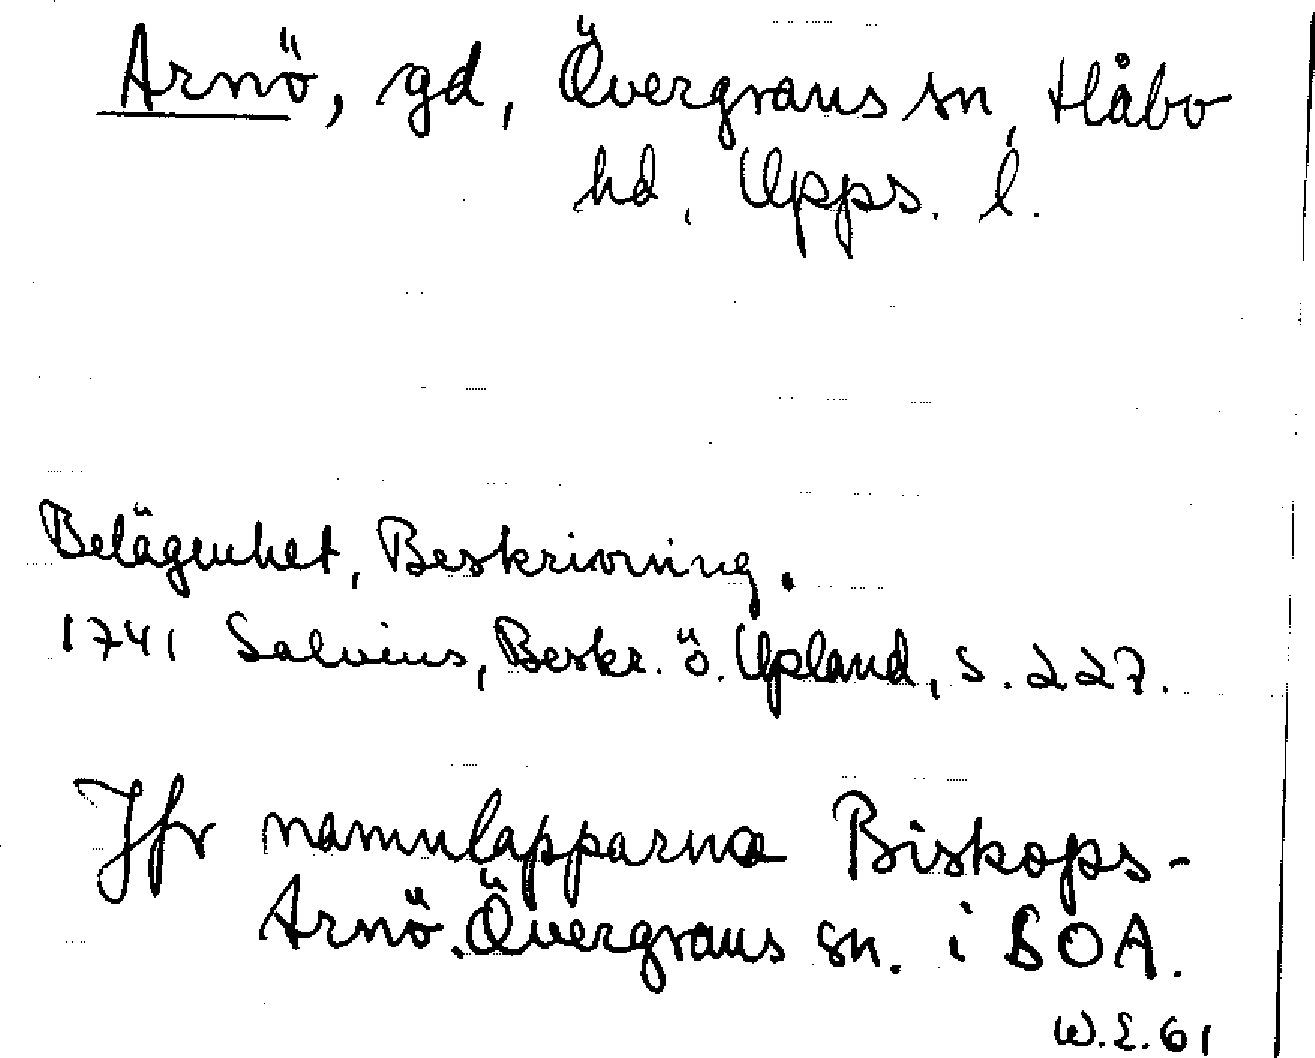 Arnö, gd, Övergrans sn, Håbo
hd, Upps. l.
Belägenhet, Beskrivning.
1741 Salvius, Beskr. ö. Upland, s. 227.
Jfr namnlapparna Biskops-
Arnö. Övergrans sn. i SOA.
W.E. 61